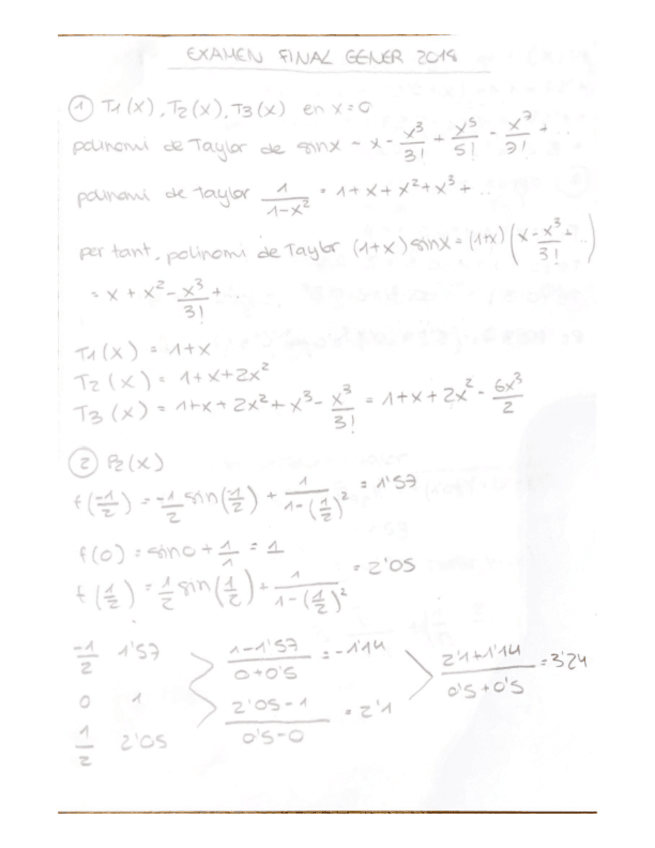 EXAMEN FINAL GENER 2019
① T1(x), T2(x), T3(x) en x=0
polinomi de Taylor de sinx - x - x³/3! + x⁵/5! - x⁷/7! + ..
polinomi de taylor 1/(1-x²) = 1+x+x²+x³+ ..
per tant, polinomi de Taylor (1+x) sinx = (1+x) (x - x³/3! + ..)
= x + x² - x³/3! + ..
T1(x) = 1+x
T2(x) = 1+x+2x²
T3(x) = 1+x+2x²+x³ - x³/3! = 1+x+2x² - 6x³/2
② P2(x)
f(-1/2) = -1/2 sin(1/2) + 1/(1-(1/2)²) = 1'57
f(0) = sin0 + 1/1 = 1
f(1/2) = 1/2 sin(1/2) + 1/(1-(1/2)²) = 2'05
-1/2 1'57
0 1
1/2 2'05
(1-1'57)/(0+0'5) = -1'14
(2'05-1)/(0'5-0) = 2'1
(2'1+1'14)/(0'5+0'5) = 3'24